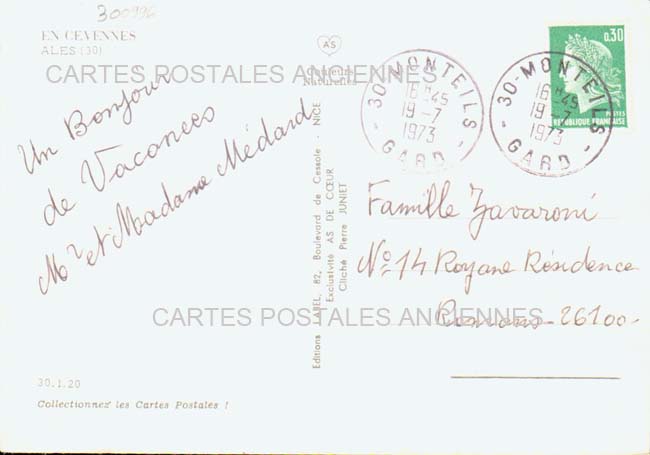 300996
EN CEVENNES
ALES (30)
AS
Couleurs
Naturelles
CARTES POSTALES ANCIENNES
Un Bonjour
de Vacances
Mr et Madame Médard
30.1.20
Collectionnez les Cartes Postales !
Editions LABEL, 82, Boulevard de Cessole - NICE
Exclusivité AS DE CŒUR
Cliché Pierre JUNIET
30-MONTEILS
16 H 45
19-7
1973
GARD
30-MONTEILS
16 H 45
19-7
1973
GARD
0,30
POSTES
REPUBLIQUE FRANÇAISE
Famille Zavaroni
No 14 Royane Résidence
Romans 26100
CARTES POSTALES ANCIENNES